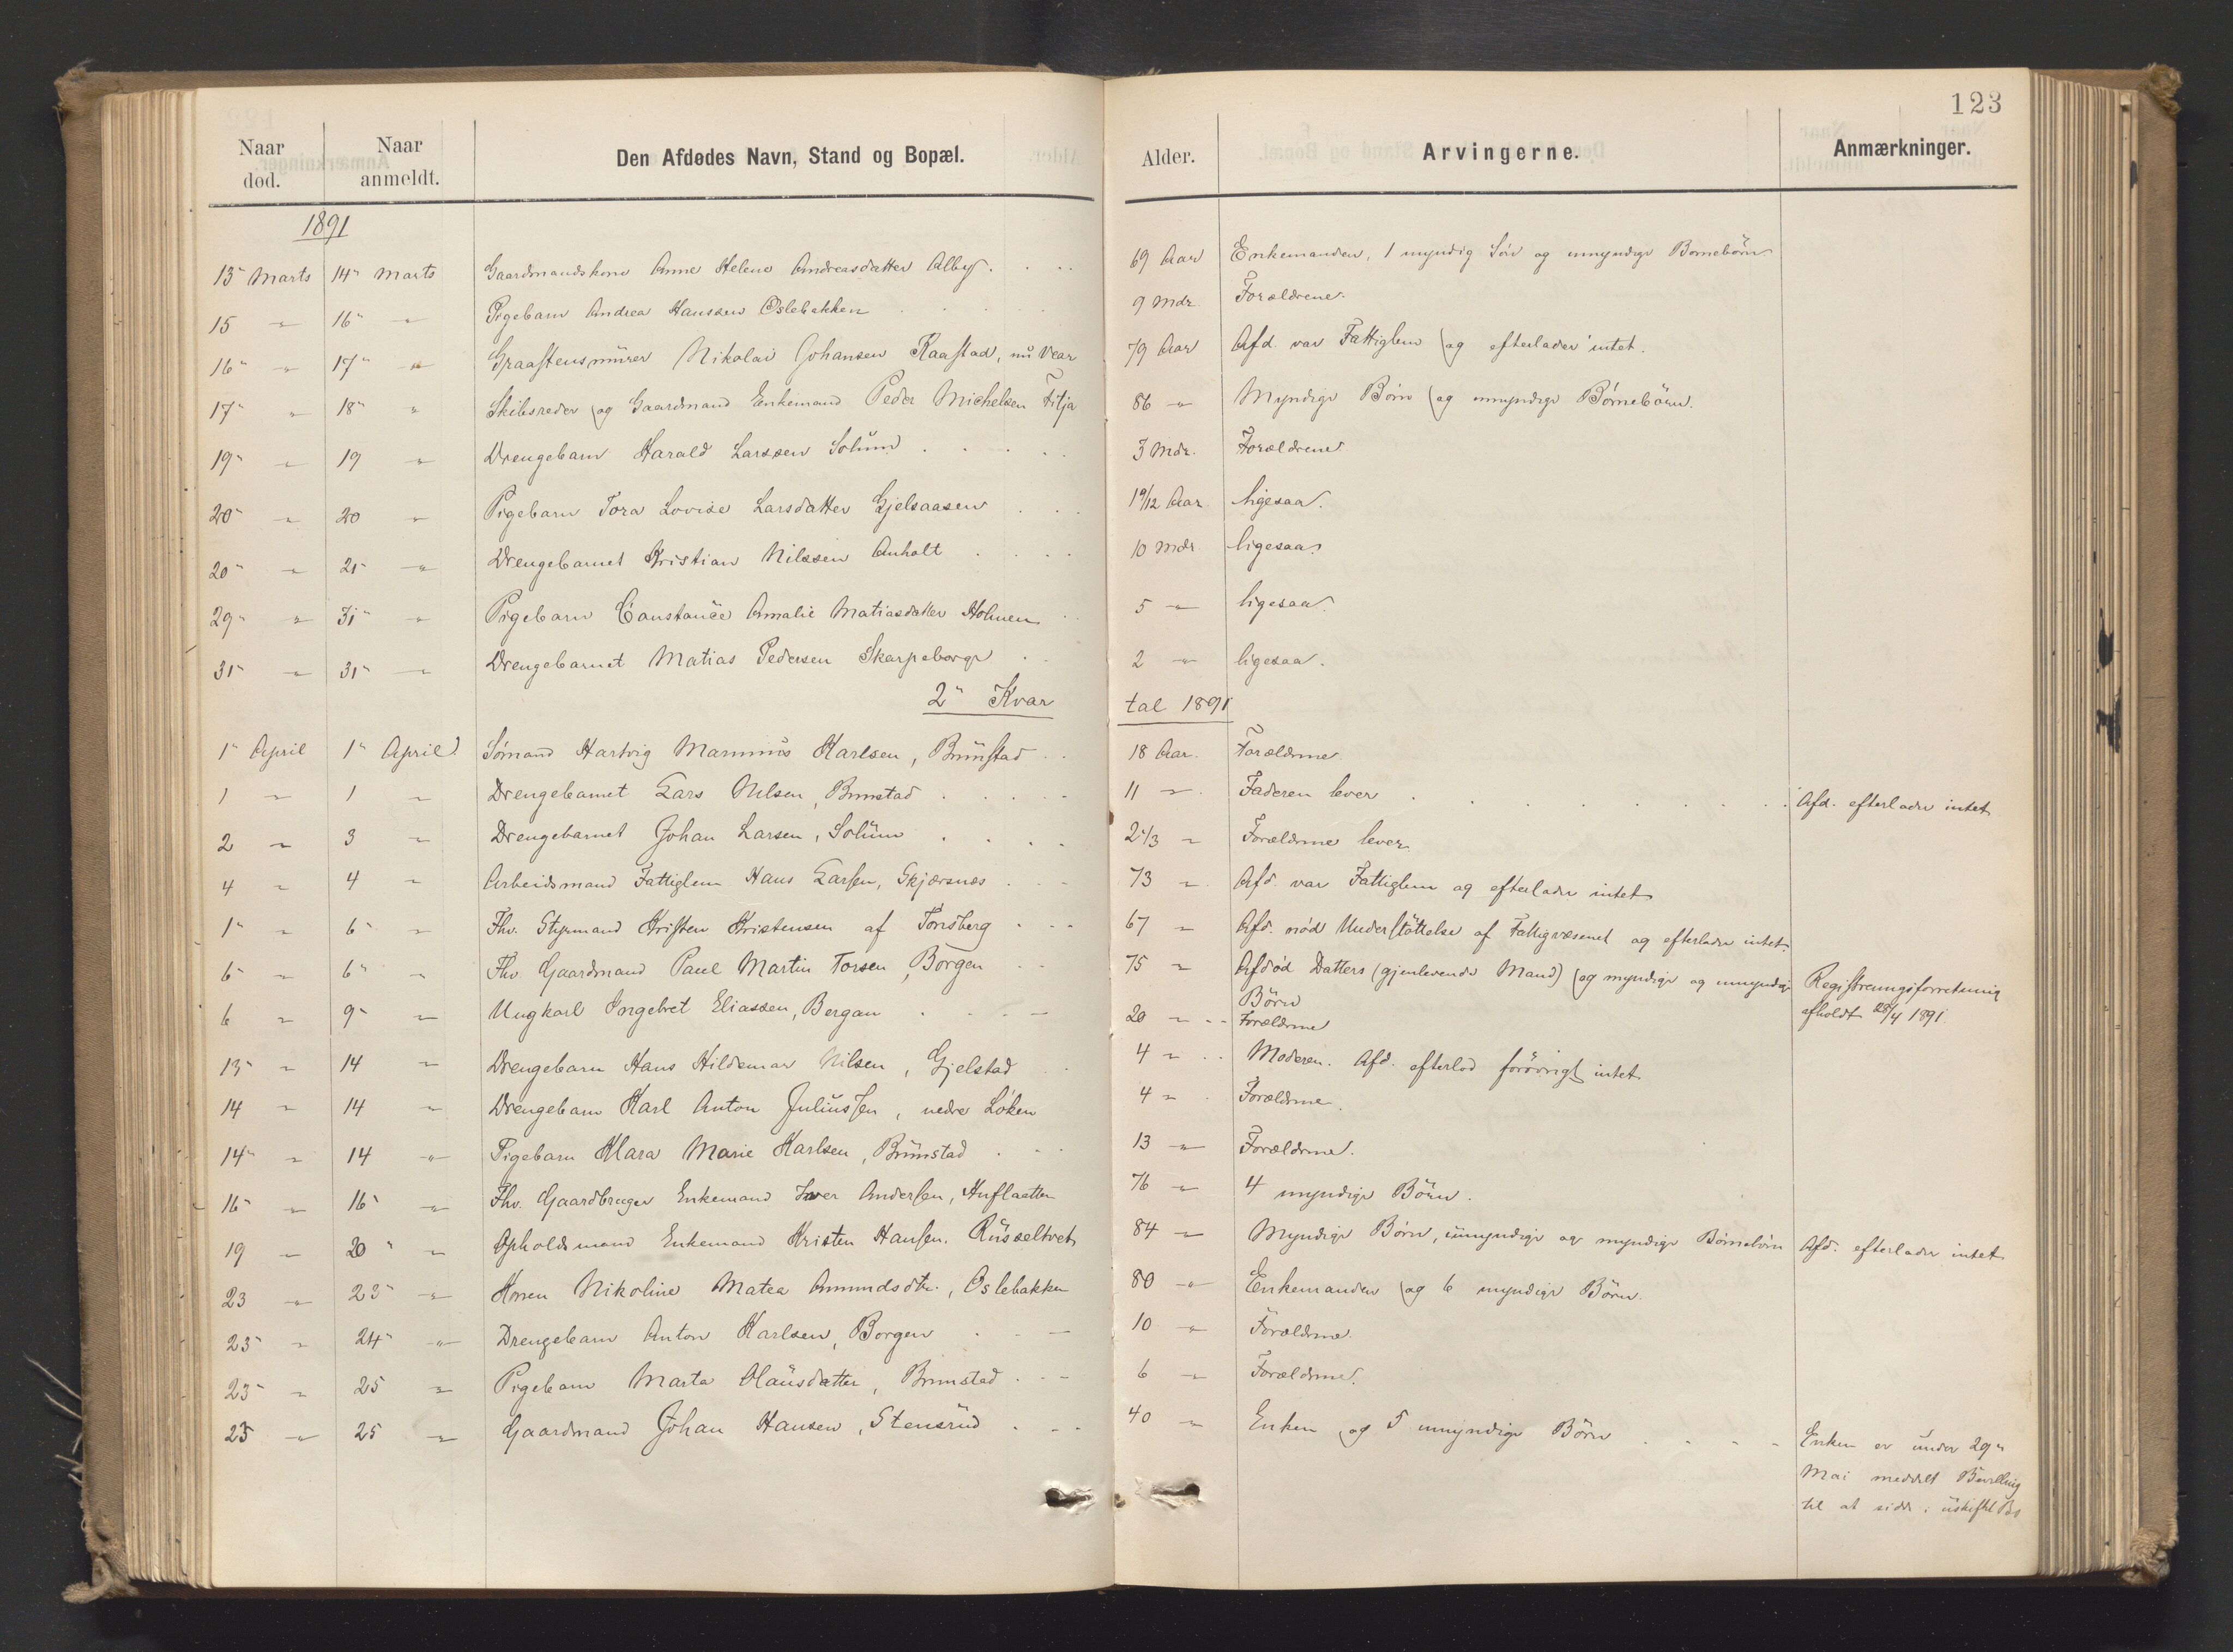 123
Naar død. Naar anmeldt. Den Afdødes Navn, Stand og Bopæl. Alder. Arvingerne. Anmærkninger.
1891
13" Marts 14" Marts Gaardmandskone Anne Helene Andreasdatter Alby. 69 Aar Enkemanden, 1 myndig Søn og umyndige Børnebörn
15 " 16" " Pigebarn Andrea Hanssen Oslebakken 9 Mdr. Forældrene.
16" " 17" " Graastensmürer Nikolai Johansen Raastad, nu Vear 79 Aar Afd. var Fattiglem og efterlader intet.
17" " 18" " Skibsreder og Gaardmand Enkemand Peder Michelsen Filja 86 " Myndige Börn og umyndige Börnebörn.
19" " 19 " Drengebarn Harald Larssen Solum 3 Mdr. Forældrene
20" " 20 " Pigebarn Tora Lovise Larsdatter Gjelsaasen 1 9/12 Aar ligesaa.
20" " 21" " Drengebarnet Kristian Nilssen Anholt 10 Mdr ligesaa.
29" " 31" " Pigebarn Constance Amalie Matiasdatter Holmen 5 " ligesaa.
31" " 31" " Drengebarnet Matias Pedersen Skarpeborge 2 " ligesaa.
2" Kvar tal 1891
1" April 1" April Sømand Hartvig Marinius Karlsen, Brünstad 18 Aar. Forældrene
1 " 1 " Drengebarnet Lars Nilsen, Brunstad 11 " Faderen lever Afd. efterlader intet
2 " 3 " Drengebarnet Johan Larsen, Solüm 2 1/3 " Forældrene lever
4 " 4 " Arbeidsmand Fattiglem Hans Larsen, Skjærsnes 73 " Afd. var Fattiglem og efterlader intet
1" " 6" " Fhv. Styrmand Kristen Kristensen af Tønsberg 67 " Afd. nød Understöttelse af Fattigvæsenet og efterlader intet.
6" " 6" " Fhv. Gaardmand Paul Martin Torsen, Borgen 75 " Afdød Datters (gjenlevende Mand) og myndige og umyndige Börn Registreringsforretning
afholdt 28/4 1891.
6 " 9" " Ungkarl Ingebret Eliassen, Bergan 20 " Forældrene
13" " 14 " Drengebarn Hans Hildemar Nilsen, Gjelstad 4 " Moderen. Afd. efterlod forövrigt intet
14 " 14 " Drengebarn Karl Anton Juliussen, nedre Løken 4 " Forældrene.
14" " 14 " Pigebarn Klara Marie Karlsen, Brünstad 13 " Forældrene.
16" " 16" " Fhv. Gaardbruger Enkemand Iver Andersen, Huflaatten 76 " 4 myndige Börn.
19 " 20" " Opholdsmand Enkemand Kristen Hansen. Rüsseltvet 84 " Myndige Börn, umyndige og myndige Börnebörn Afd. efterlader intet
23 " 23" " Konen Nikoline Matea Amundsdtr., Oslebakken 80 " Enkemanden og 6 myndige Börn.
23" " 24" " Drengebarn Anton Karlsen, Borgen 10 " Forældrene.
23" " 25 " Pigebarn Marta Olausdatter, Brunstad 6 " Forældrene.
25 " 25 " Gaardmand Johan Hansen, Stensrüd 40 " Enken og 5 umyndige Börn Enken er under 29"
Mai meddelt Bevilling
til at sidde i uskiftet Bo